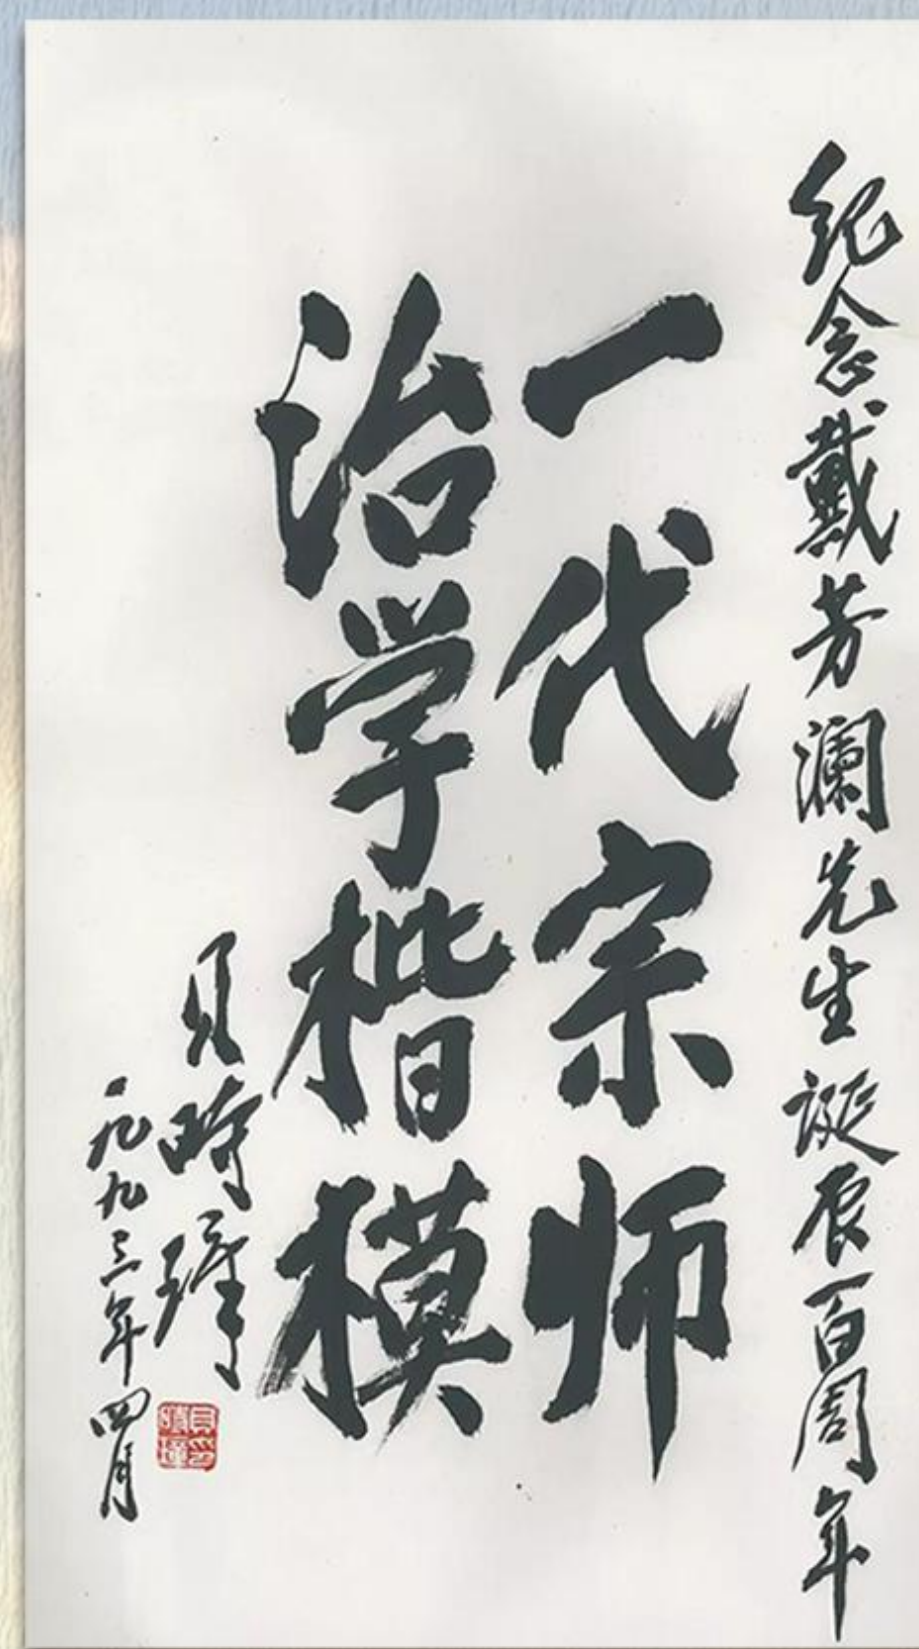 纪念戴芳澜先生诞辰一百周年
一代宗师
治学楷模
贝时璋
一九九三年四月
贝时璋印